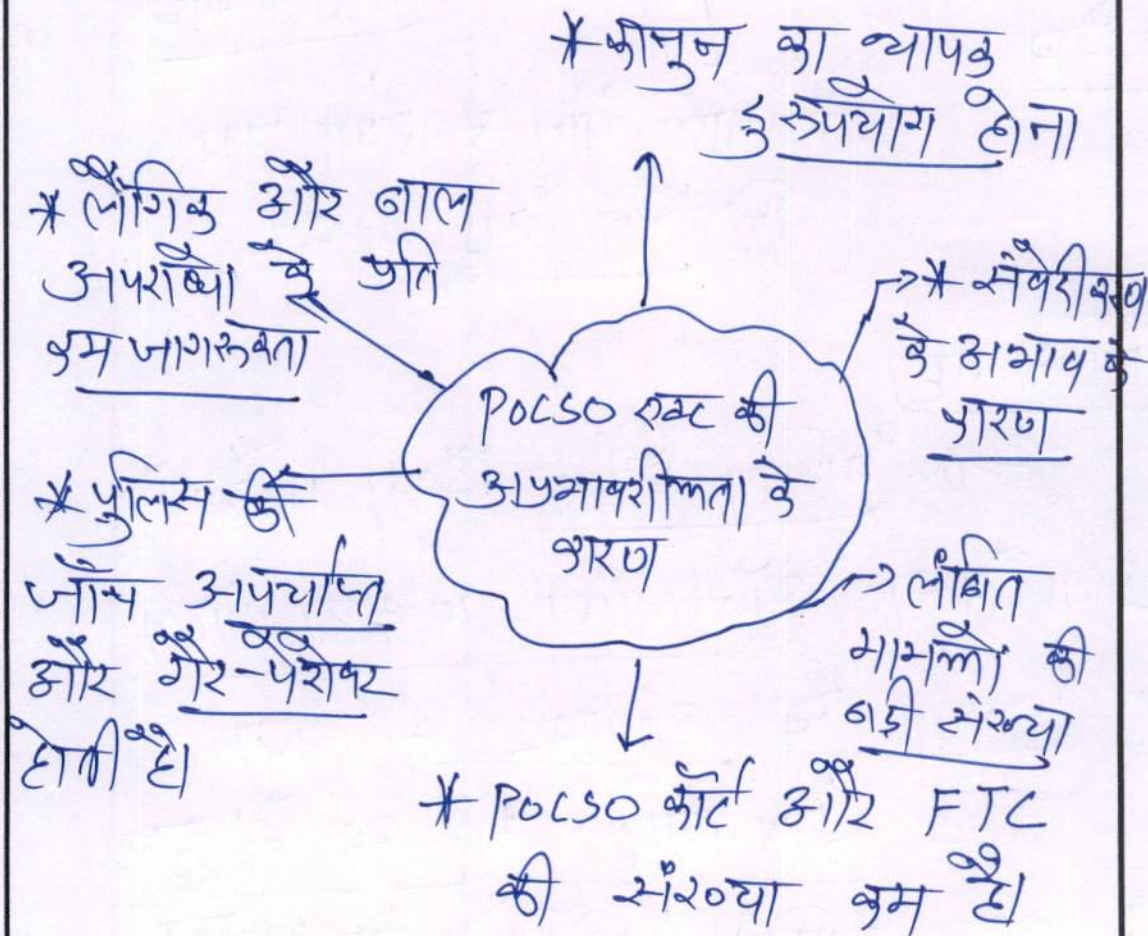 * कानून का व्यापक
दुरूपयोग होना
* लैंगिक और बाल
अपराधों के प्रति
कम जागरूकता
→* संवेदीकरण
के अभाव के
कारण
POCSO एक्ट की
अप्रभावशीलता के
कारण
* पुलिस की
जाँच अपर्याप्त
और गैर-पेशेवर
होती है।
→ लंबित
मामलों की
बड़ी संख्या
* POCSO कोर्ट और FTC
की संख्या कम है।